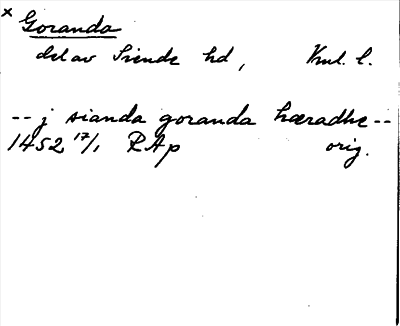 × Goranda
del av Siende hd, Vml. l.
-- j sianda goranda hæradhe --
1452 17/1 RAp orig.